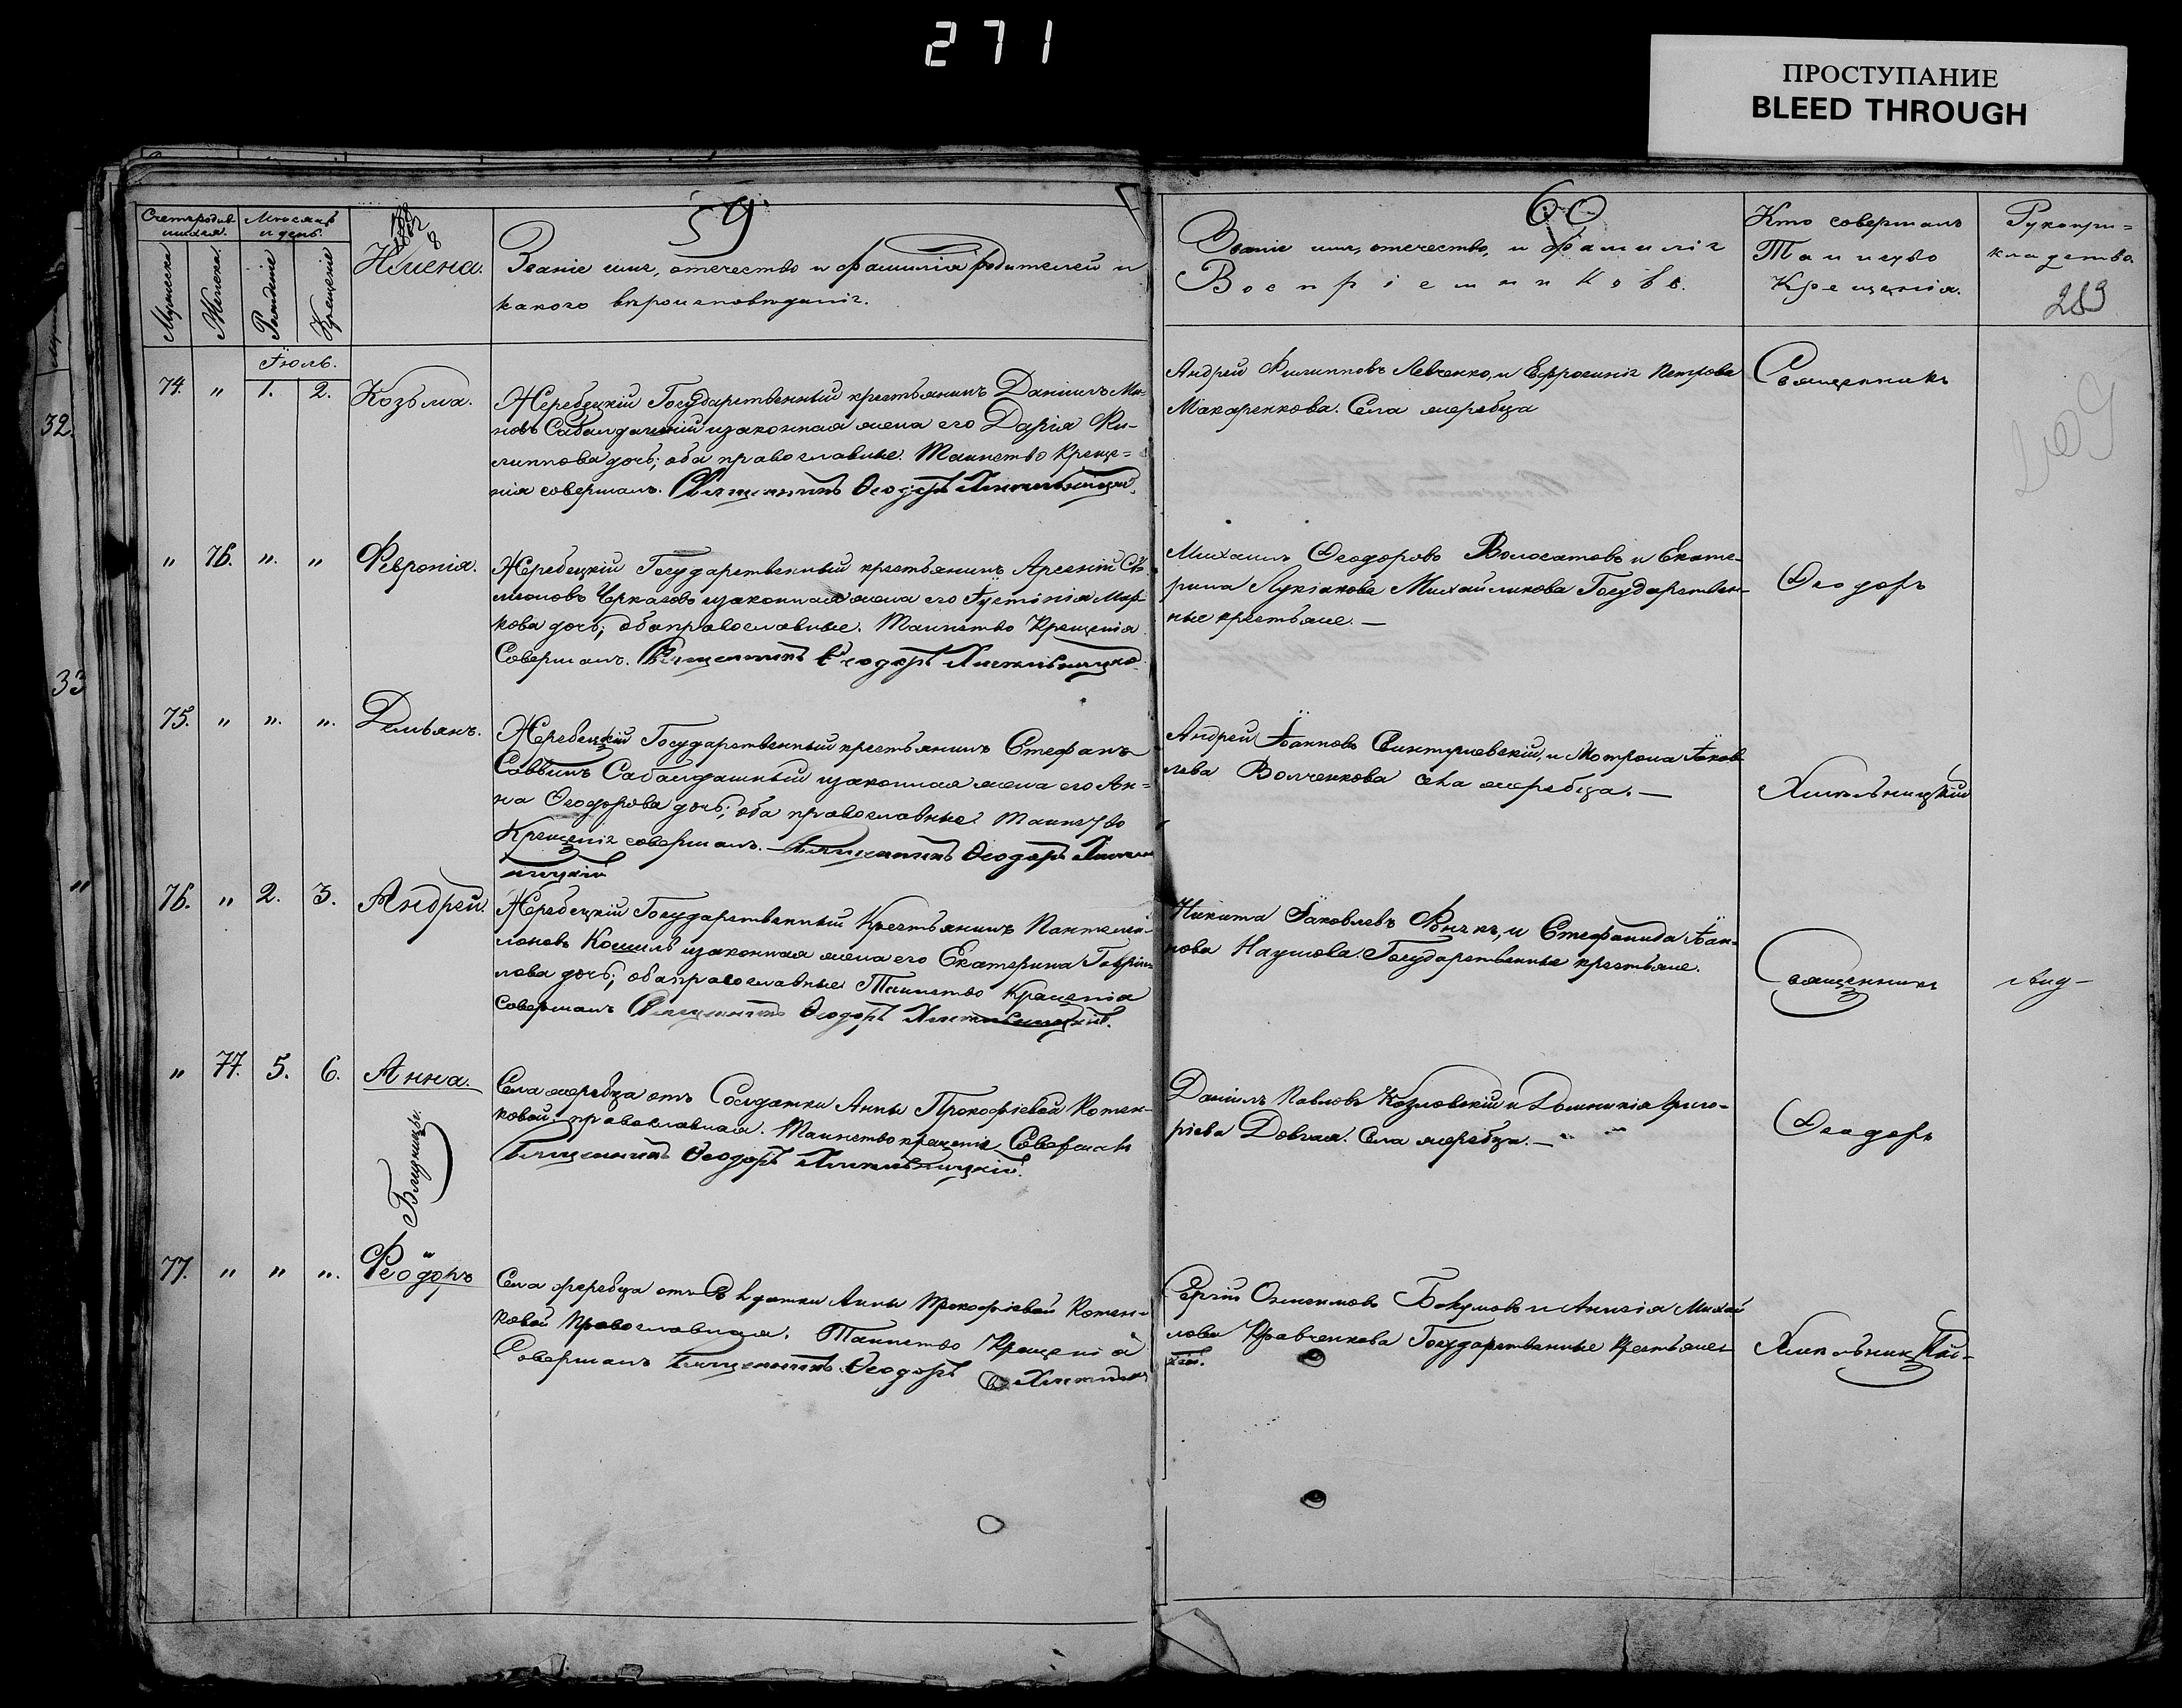 271
ПРОСТУПАНИЕ
BLEED THROUGH
59
60
Счетъ родив-
шихся.
Мѣсяцъ
и день.
Мужеска
Женска.
Рожденіе
Крещеніе
Имена.
Званіе имя, отечество и фамилія родителей и
какого вѣроисповѣданія.
Званіе имя, отечество, и фамилія
Воспріемниковъ.
Кто совершалъ
Таинство
Крещенія.
Рукопри-
кладство.
283
Іюль.
32.
74. " 1. 2. Козьма.
Жеребецкій Государственный крестьянинъ Даніилъ
новъ Сабалдашній и законная жена его Дарія Фи-
липпова дочь; оба православные. Таинство Креще-
нія совершалъ. Священникъ Ѳеодоръ Хмельницкій.
Андрей Филипповъ Левченко, и Ефросинія Петрова
Макаренкова. Села жеребца
Священникъ
" 76. ". " Февронія.
Жеребецкій Государственный крестьянинъ Арсеній
Черкасовъ и законная жена его Іустинія Мар-
кова дочь; оба православные. Таинство Крещенія
Совершалъ. Священникъ Ѳеодоръ Хмельницкій
Михаилъ Ѳеодоровъ Волосатовъ и Екате-
рина Лукіянова Михайликова Государствен-
ные крестьяне. —
Ѳеодоръ
33
75. " ". ". Демьянъ.
Жеребецкій Государственный крестьянинъ Стефанъ
Саввинъ Сабалдашный и законная жена его Ан-
на Ѳеодорова дочь; оба православные. Таинство
Крещенія совершалъ. — Священникъ Ѳеодоръ Хмель
ницкій
Андрей Іоанновъ и Мотрона Іаков
лева Волченкова села жеребца. —
Хмельницкій
"
76. " 2. 3. Андрей.
Жеребецкій Государственный Крестьянинъ Пантелей-
моновъ Кошиль и законная жена его Екатерина Гаврии-
лова дочь; оба православные Таинство Крещенія
совершалъ Священникъ Ѳеодоръ Хмельницкій.
Никита Іаковлевъ и Стефанида Іоан-
нова Наумова. Государственные крестьяне.
Священникъ
" 77. 5. 6. Анна.
Близницы.
Села жеребца отъ Солдатки Анны Прокофіевой Котен-
ковой православная. Таинство крещенія Совершалъ
Священникъ Ѳеодоръ Хмельницкій.
Даніилъ Павловъ Козловскій и Домникія Григо-
ріева Довгая. Села жеребца. —
Ѳеодоръ
77. " " ". Феодоръ
Села жеребца отъ Солдатки Анны Прокофіевой Котен-
ковой Православная. Таинство Крещенія
Совершалъ Священникъ Ѳеодоръ Хмельниц
кій.
Сергій Бакумовъ и Анисія Михай
лова Кравченкова Государственные Крестьяне
Хмельницкій-